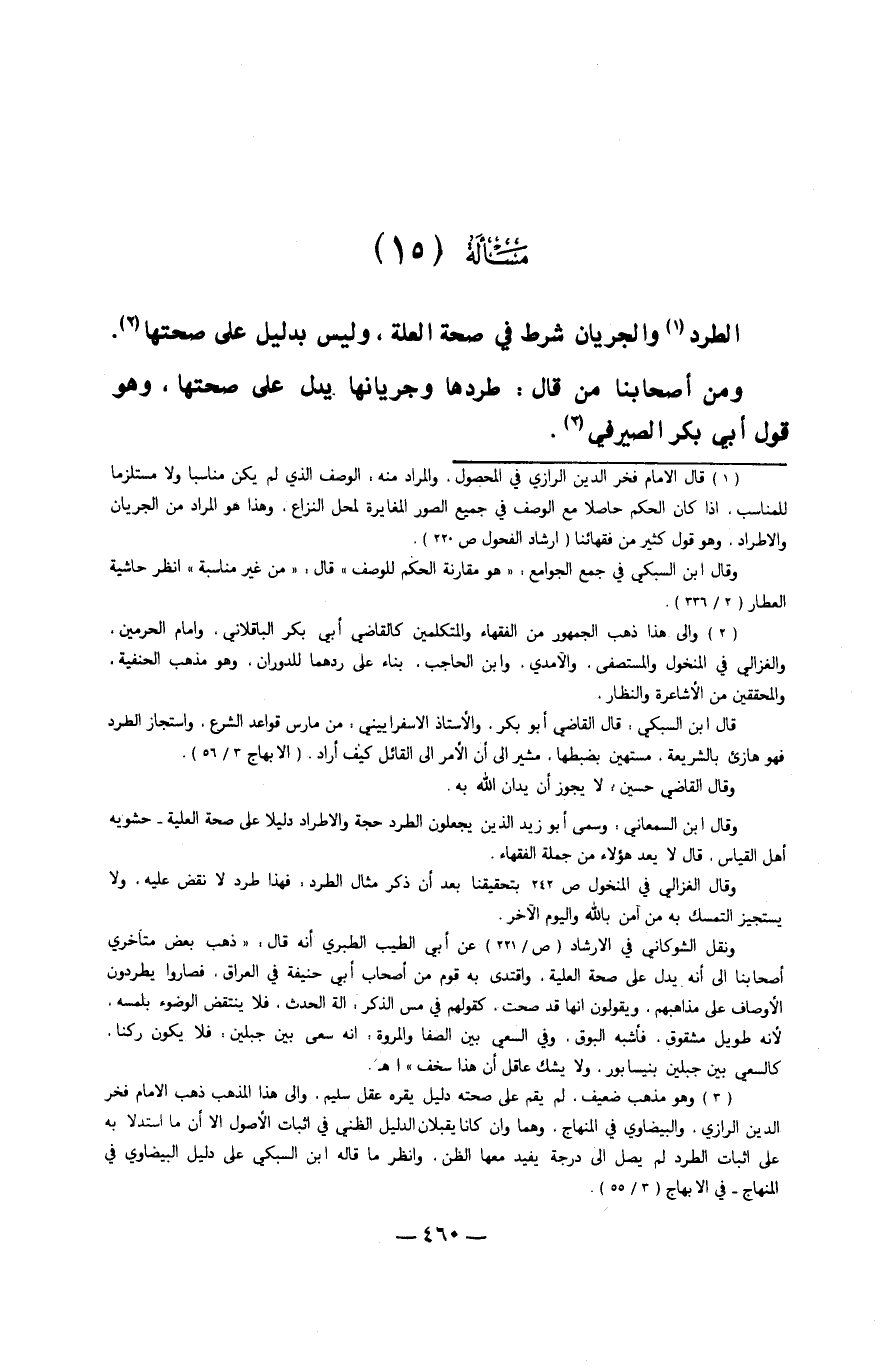 مسألة (١٥)
الطرد(١) والجريان شرط في صحة العلة ، وليس بدليل على صحتها(٢).
ومن أصحابنا من قال : طردها وجريانها يدل على صحتها ، وهو
قول أبي بكر الصيرفي(٣) .
(١) قال الامام فخر الدين الرازي في المحصول . والمراد منه : الوصف الذي لم يكن مناسبا ولا مستلزما
للمناسب . اذا كان الحكم حاصلا مع الوصف في جميع الصور المغايرة لمحل النزاع . وهذا هو المراد من الجريان
والاطراد . وهو قول كثير من فقهائنا ( ارشاد الفحول ص ٢٢٠ ) .
وقال ابن السبكي في جمع الجوامع : « هو مقارنة الحكم للوصف » قال : « من غير مناسبة » انظر حاشية
العطار ( ٢ / ٣٣٦ ) .
(٢) والى هذا ذهب الجمهور من الفقهاء والمتكلمين كالقاضي أبي بكر الباقلاني . وامام الحرمين .
والغزالي في المنخول والمستصفى . والآمدي . وابن الحاجب . بناء على ردهما للدوران . وهو مذهب الحنفية .
والمحققين من الأشاعرة والنظار .
قال ابن السبكي : قال القاضي أبو بكر . والأستاذ الاسفراييني : من مارس قواعد الشرع . واستجاز الطرد
فهو هازئ بالشريعة . مستهين بضبطها . مشير الى أن الأمر الى القائل كيف أراد . ( الابهاج ٣ / ٥٦ ) .
وقال القاضي حسين : لا يجوز أن يدان الله به .
وقال ابن السمعاني : وسمى أبو زيد الذين يجعلون الطرد حجة والاطراد دليلا على صحة العلية ـ حشويه
أهل القياس . قال لا يعد هؤلاء من جملة الفقهاء .
وقال الغزالي في المنخول ص ٢٤٢ بتحقيقنا بعد أن ذكر مثال الطرد : فهذا طرد لا نقض عليه . ولا
يستجيز التمسك به من آمن بالله واليوم الآخر .
ونقل الشوكاني في الارشاد ( ص / ٢٢١ ) عن أبي الطيب الطبري أنه قال : « ذهب بعض متأخري
أصحابنا الى أنه يدل على صحة العلية . واقتدى به قوم من أصحاب أبي حنيفة في العراق . فصاروا يطردون
الأوصاف على مذاهبهم . ويقولون انها قد صحت . كقولهم في مس الذكر : الة الحدث . فلا ينتقض الوضوء بلمسه .
لأنه طويل مشقوق . فأشبه البوق . وفي السعي بين الصفا والمروة : انه سعى بين جبلين : فلا يكون ركنا .
كالسعي بين جبلين بنيسابور . ولا يشك عاقل أن هذا سخف » ا هـ .
(٣) وهو مذهب ضعيف . لم يقم على صحته دليل يقره عقل سليم . والى هذا المذهب ذهب الامام فخر
الدين الرازي . والبيضاوي في المنهاج . وهما وان كانا يقبلان الدليل الظني في اثبات الأصول الا أن ما استدلا به
على اثبات الطرد لم يصل الى درجة يفيد معها الظن . وانظر ما قاله ابن السبكي على دليل البيضاوي في
المنهاج ـ في الابهاج ( ٣ / ٥٥ ) .
— ٤٦٠ —